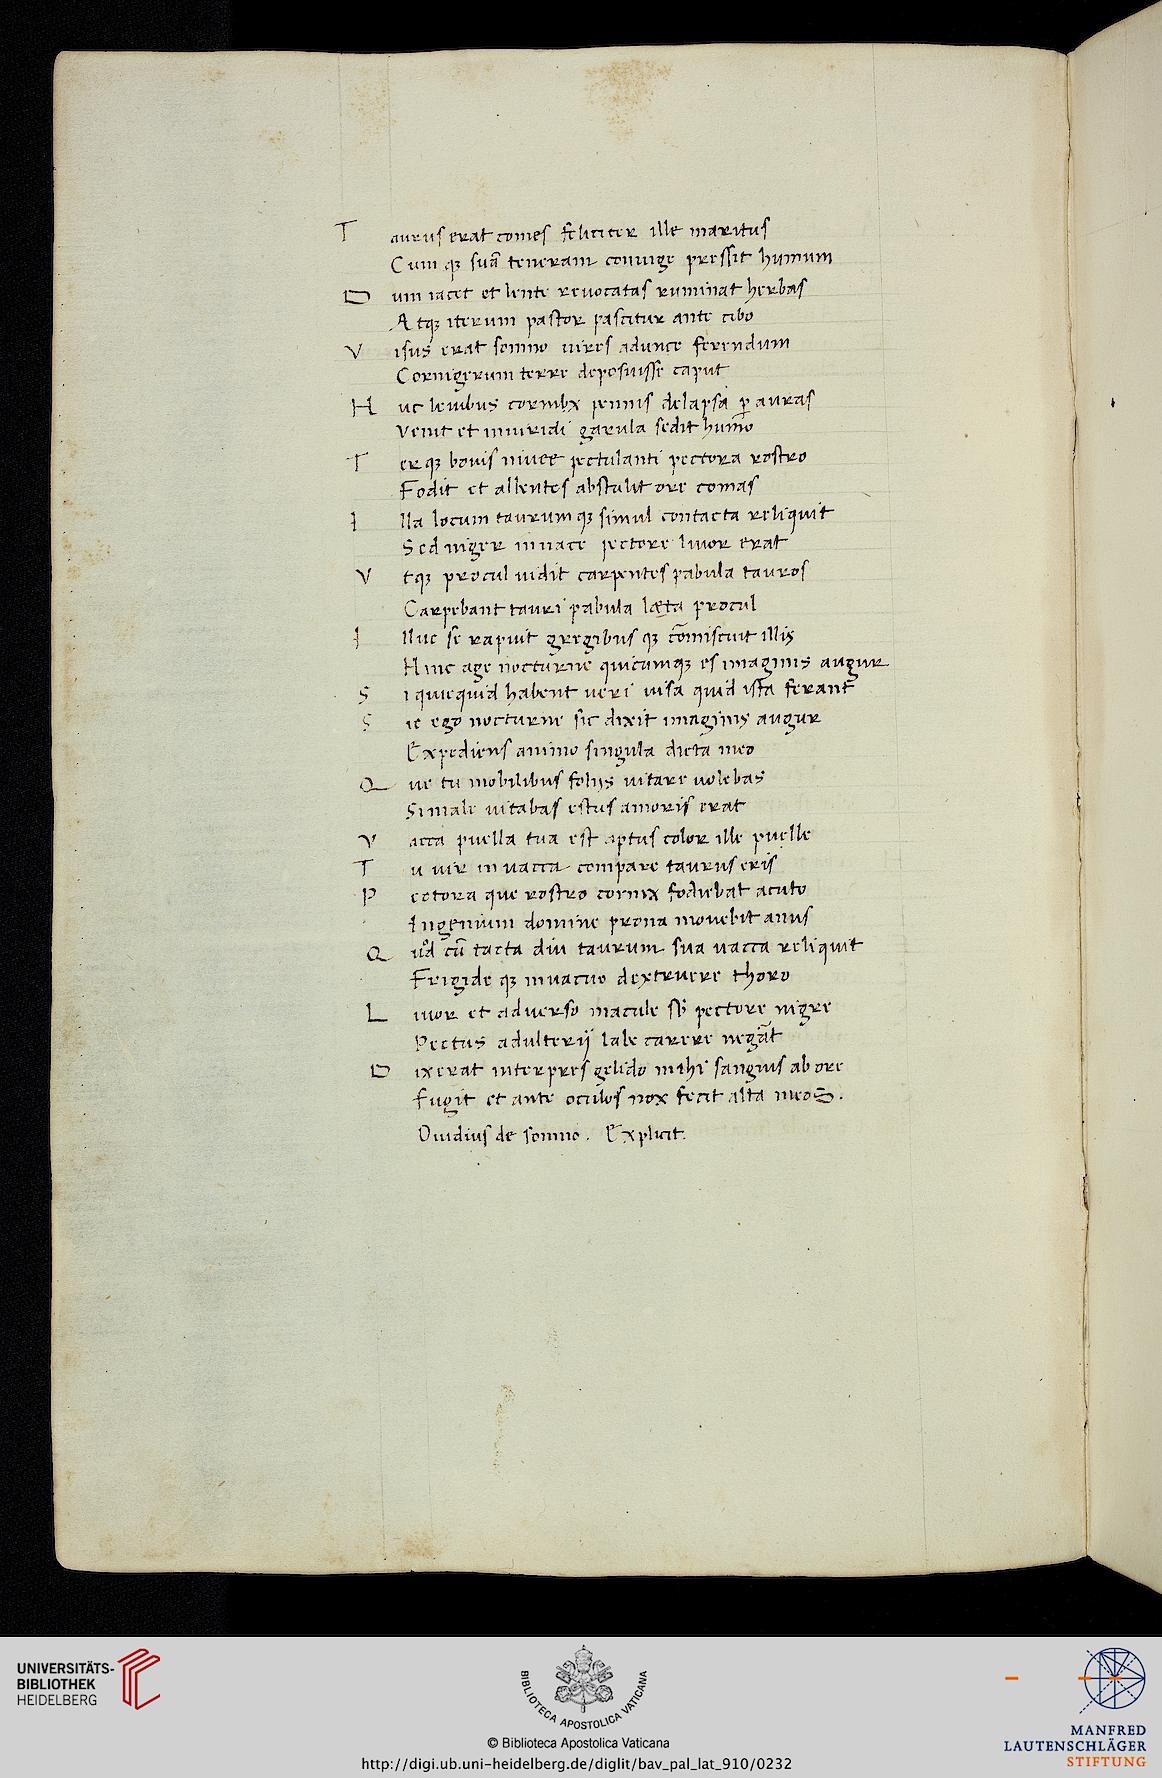 T aurus erat comes feliciter ille maritus
Cum qȝ suā teneram coniuge pressit humum
D um iacet et lente revocatas ruminat herbas
Atqȝ iterum pastor pascitur ante cibo
V isus erat somno vires adunce ferendum
Cornigerum terre deposuisse caput
H uc leuibus cornibx pennis delapsa ꝑ auras
Venit et inuiridi garula sedit humo
T er qȝ bouis nivee petulanti pectora rostro
Fodit et allentes abstulit ore comas
I lla locum taurum qȝ simul contacta reliquit
Sed niger in uace pectore liuor erat
V tqȝ procul uidit carpentes pabula tauros
Carpebant tauri pabula læta procul
I lluc se rapuit gregibus qȝ cōmiscuit illis
Hinc age nocturne quicumqȝ es imaginis augur
S i quicquid habent ueri uisa quid ista ferant
S ic ego nocturne sic dixit imaginis augur
Expediens animo singula dicta meo
Q ue tu mobilibus folijs uitare uolebas
Si male uitabas estus amoris erat
V acca puella tua est aptus color ille puelle
T u uir in uacca compare taurus eris
P ectora que rostro cornix fodiebat acuto
Ingenium domine prona mouebit anus
Q uod cū tacta diu taurum sua uacca reliquit
Frigide qȝ in uacuo dextruere thoro
L iuor et aduerso macule sb pectore nigre
Pectus adulterij labe carere negāt
D ixerat interpres gelido mihi sangius ab ore
Fugit et ante oculos nox fecit alta meos.
Ouidius de somno. Explicit.
UNIVERSITÄTS-
BIBLIOTHEK
HEIDELBERG
BIBLIOTECA APOSTOLICA VATICANA
© Biblioteca Apostolica Vaticana
http://digi.ub.uni-heidelberg.de/diglit/bav_pal_lat_910/0232
MANFRED
LAUTENSCHLÄGER
STIFTUNG